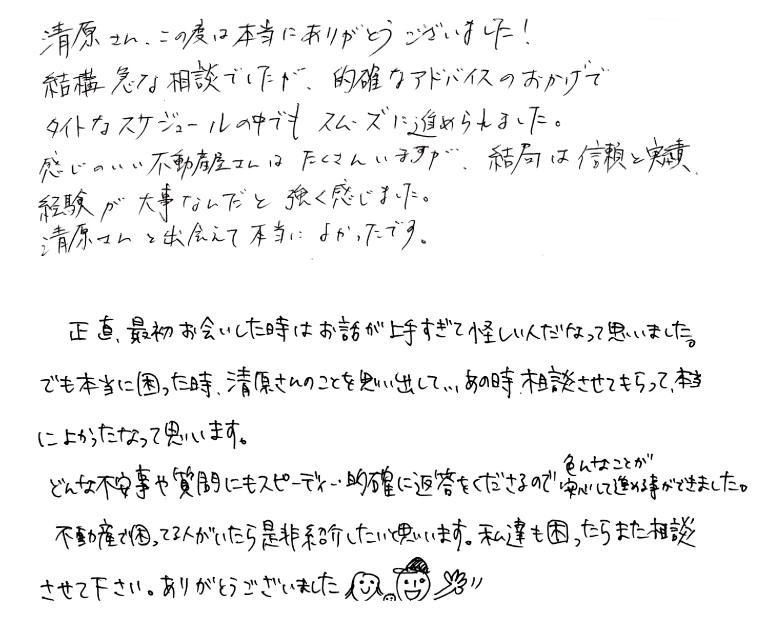 清原さん、この度は本当にありがとうございました！
結構急な相談でしたが、的確なアドバイスのおかげで
タイトなスケジュールの中でもスムーズに進められました。
感じのいい不動産屋さんはたくさんいますが、結局は信頼と実績、
経験が大事なんだと強く感じました。
清原さんと出会えて本当によかったです。
正直、最初お会いした時はお話が上手すぎて怪しい人だなって思いました。
でも本当に困った時、清原さんのことを思い出して、、、あの時、相談させてもらって、本当
によかったなって思います。
どんな不安事や質問にもスピーディー的確に返答をくださるので色んなことが
安心して進める事ができました。
不動産で困ってる人がいたら是非紹介したいと思います。私達も困ったらまた相談
させて下さい。ありがとうございました